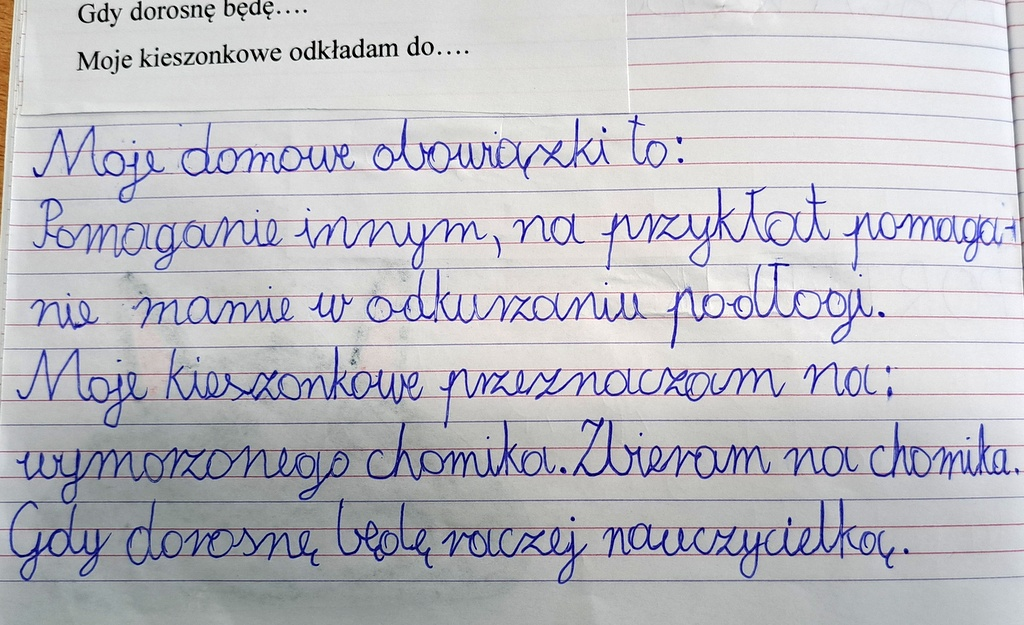 Gdy dorosnę będę….
Moje kieszonkowe odkładam do….
Moje domowe obowiązki to:
Pomaganie innym, na przykłat pomaga-
nie mamie w odkurzaniu podłogi.
Moje kieszonkowe przeznaczam na:
wymorzonego chomika. Zbieram na chomika.
Gdy dorosnę będę raczej nauczycielką.